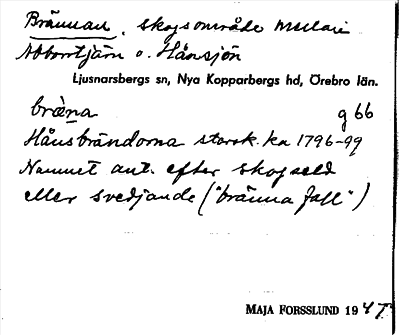 Brännan, skogsområde mellan
Abborrtjärn o. Hånsjön
Ljusnarsbergs sn, Nya Kopparbergs hd, Örebro län.
bræna g 66
Hånsbrändorna storsk. ka 1796-99
Namnet ant. efter skogseld
eller svedjande ("bränna fall")
MAJA FORSSLUND 1947